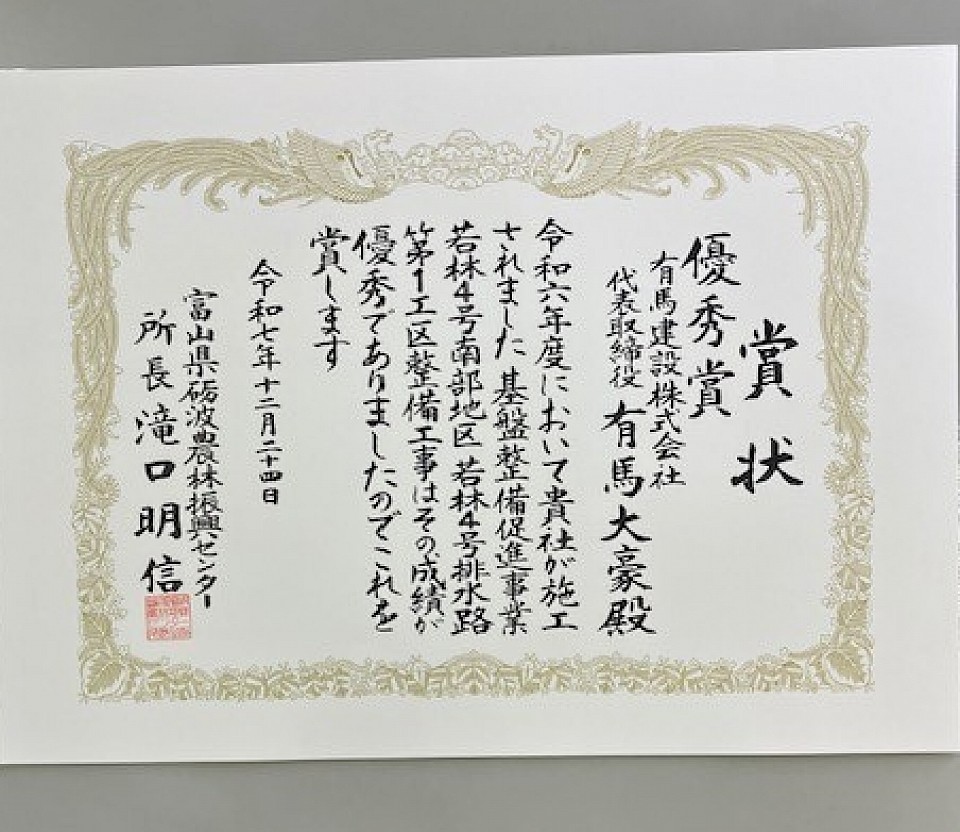 賞状
優秀賞
有馬建設株式会社
代表取締役 有馬大豪殿
令和六年度において貴社が施工
されました 基盤整備促進事業
若林4号南部地区 若林4号排水路
第1工区整備工事はその成績が
優秀でありましたのでこれを
賞します
令和七年十二月二十四日
富山県砺波農林振興センター
所長 滝口明信